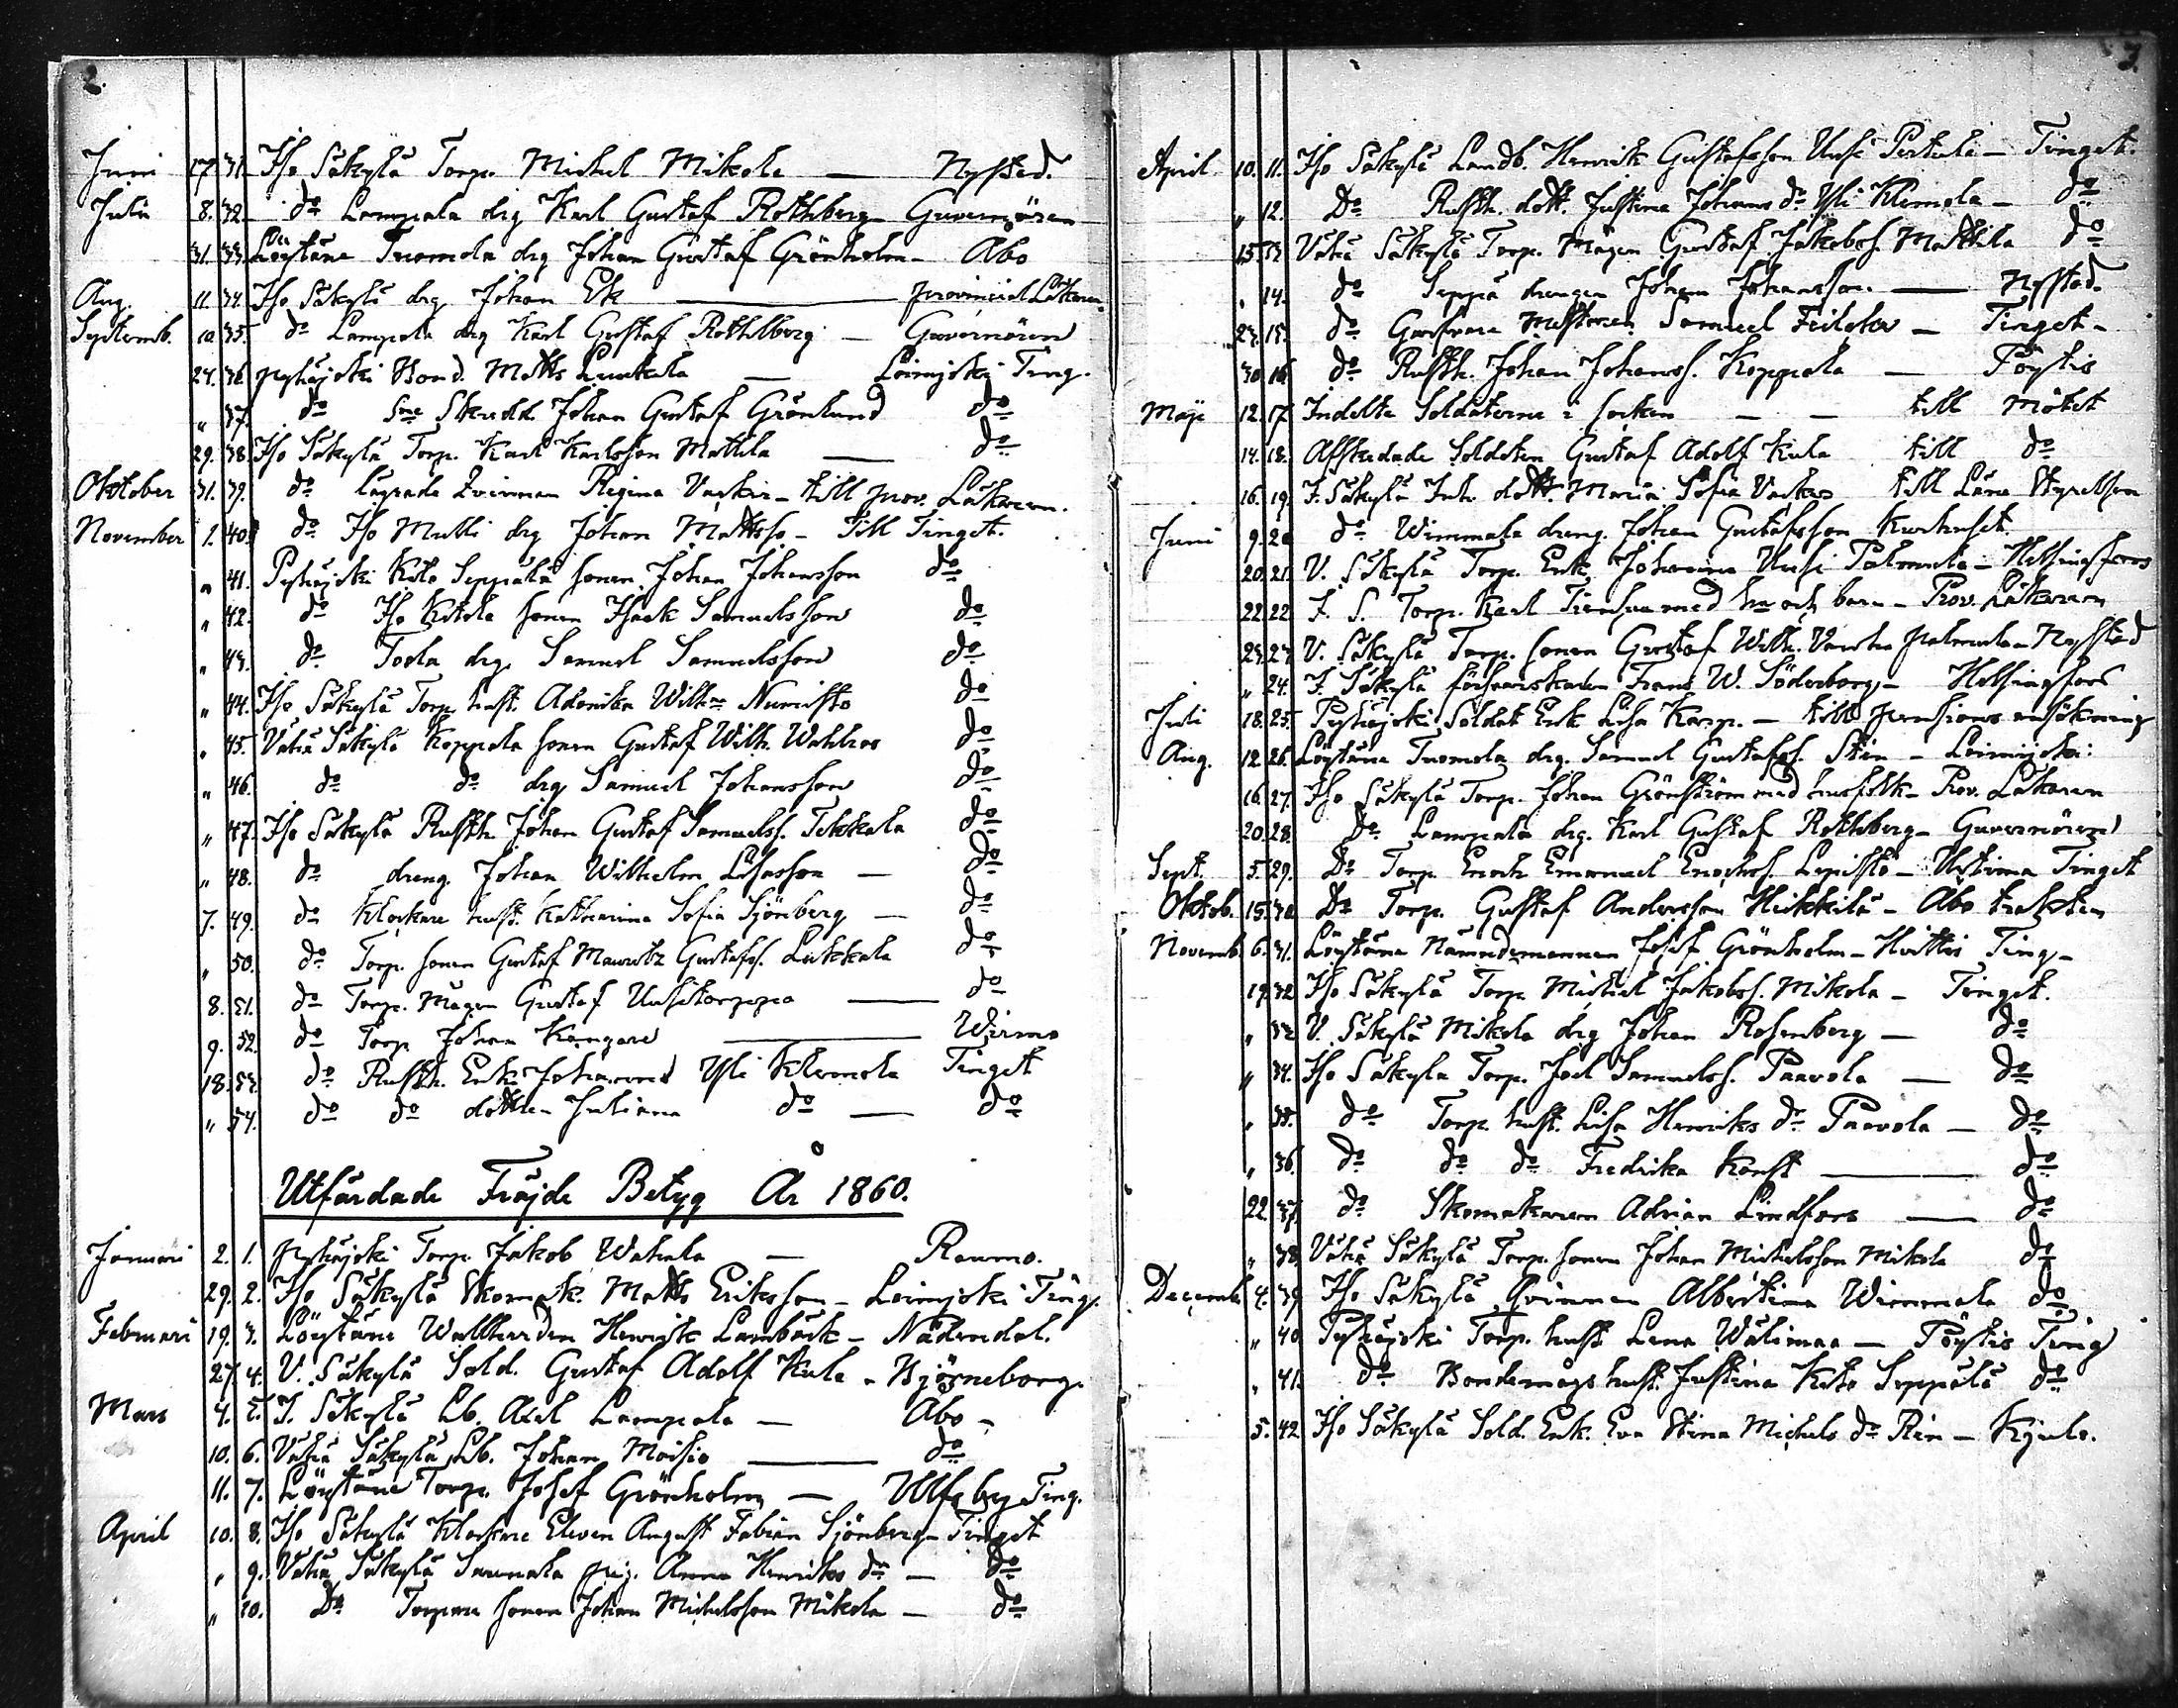 2.
Juni 17. 31. Iso Säkylä Torp. Michel Mikola — Nystad.
Julii 8. 32. do Lampala drg Karl Gustaf Rothberg — Guvernören
31. 33. Löytäne Tuomola drg Johan Gustaf Grönholm — Åbo
Aug. 11. 34. Iso Säkylä drg. Johan Ek — Provincial Läkaren
Septemb. 10. 35. do Lampola drg Karl Gustaf Rothlberg — Guvernören
24. 36. Pyhäjoki Bond. Matts Luukala — Loimjoki Ting.
„ 37. do Johan Gustaf Grönlund do
29. 38. Iso Säkylä Torp. Karl Karlsson Mattila — do
Oktober 31. 39. do Lägrade Qvinnan Regina Vaskir — till prov. Läkaren.
November 1. 40. do Iso Mulli drg Johan Mattsso — Till Tinget.
„ 41. Pyhäjoki Keto Seppälä sonen Johan Johansson do
„ 42. do Iso Ketola sonen Isaak Samuelsson do
„ 43. do Toola drg. Samuel Samuelsson do
„ 44. Iso Säkylä Torp. hust. Adamika Wilhna Nurmisto do
„ 45. Vähä Säkylä Koppala sonen Gustaf Wilh. Wahlroo do
„ 46. do do drg Samuel Johansson do
„ 47. Iso Säkylä Rusth. Johan Gustaf Samuelss. Tekkala do
„ 48. do dreng. Johan Wilhelm Lisasson — do
7. 49. do Klockare hust. Katharina Sofia Sjönberg — do
„ 50. do Torp. sonen Gustaf Mauritz Gustafss. Liekkala do
8. 51. do Torp. Mågen Gustaf Uusitorppa — do
9. 52. do Torp Johan Kangare — Wirmo
18. 53. do Rusth. Enk. Johanna Yli Klemola Tinget
„ 54. do do dotten Juliana do — do
Utfärdade Fräjde Betyg År 1860.
Januari 2. 1. Pyhäjoki Torp. Jakob Wahala — Raumo.
29. 2. Iso Säkylä Skomak. Matts Eriksson — Loimjoki Ting.
Februari 19. 3. Löytäne Henrik Lambäck — Nådendal.
27. 4. V. Säkylä Sold. Gustaf Adolf Kula — Björneborg.
Mars 4. 5. I. Säkylä Lb. Axel Lampala — Åbo —
10. 6. Vähä Säkylä Lb. Johan Moisio — do
11. 7. Löytäne Torp. Josef Grönholm — Ulfsby Ting.
April 10. 8. Iso Säkylä Klockare Eleven August Fabian Sjönberg — Tinget
„ 9. Vähä Säkylä Sarmala pig. Anna Henriks dr — do
„ 10. Do Torpare sonen Johan Michelsson Mikola — do
3.
April 10. 11. Iso Säkylä Landb. Henrik Gustafsson Uusi Pertula — Tinget.
„ 12. Do Rusth. dott. Justina Johans dr Yli Klemola — do
15. 13. Vähä Säkylä Torp. Mågen Gustaf Jakobss. Mattila do
„ 14. do Seppä drengen Johan Johansson. — Nystad.
23. 15. do Garfvare Mästaren Samuel — Tinget —
30. 16. do Rusth. Johan Johanss. Koppala — Pöytis
Maji 12. 17. Indelta Soldaterne i socken — — till Mötet
14. 18. Afskedade Soldaten Gustaf Adolf Kula till do
16. 19. I. Säkylä Inh. dott. Maria Sofia Vaskus till Läne Styrelsen
Juni 9. 20. do Wimmala dreng. Johan Gustafsson Kurhuset.
20. 21. V. Säkylä Torp. Enk. Johanna Uusi Palmula — Helsingfors
22. 22. I. S. Torp. Karl med hu och barn — Prov. Läkaren
23. 23. V. Säkylä Torp. sonen Gustaf Wilh. Vanha palmula — Nystad
„ 24. I. Säkylä Frans W. Söderborg — Helsingfors
Juli 18. 25. Pyhäjoki Soldat Enk Lisa Karp. — till pensions ansökning
Aug. 12. 26. Löytäne Tuomola drg. Samuel Gustafss. Sten — Loimijoki
16. 27. Iso Säkylä Torp. Johan Grönström med husfolk — Prov. Läkaren
20. 28. Do Lampala drg. Karl Gustaf Rothberg — Guvernören
Sept. 5. 29. Do Torp Enoch Emanuel Enochss. Lepistö — Tinget
Oktob. 15. 30. Do Torp. Gustaf Andersson Heikkilä — Åbo trakten
Novemb. 6. 31. Löytäne Nämndemannen Josef Grönholm — Hvittis Ting —
19. 32. Iso Säkylä Torp Michel Jakobss. Mikola — Tinget.
„ 33. V. Säkylä Mikola drg Johan Rosenberg — do
„ 34. Iso Säkylä Torp. Joel Samuelss. Paavola — do
„ 35. do Torp. hust. Lisa Henriks dr Paavola — do
„ 36. do do do Fredrika Konst — do
22. 37. do Skomakaren Adrian Lindfors — do
„ 38. Vähä Säkylä Torp. sonen Johan Michelsson Mikola do
Decemb. 4. 39. Iso Säkylä Qvinnan Albertina Wimmala do
„ 40. Pyhäjoki Torp. hust Lena Wälimaa — Pöytis Ting
„ 41. do Bondemågs hust. Justina Keto Seppälä do
5. 42. Iso Säkylä Sold. Enk. Eva Stina Michels dr Ren — Kjulo.